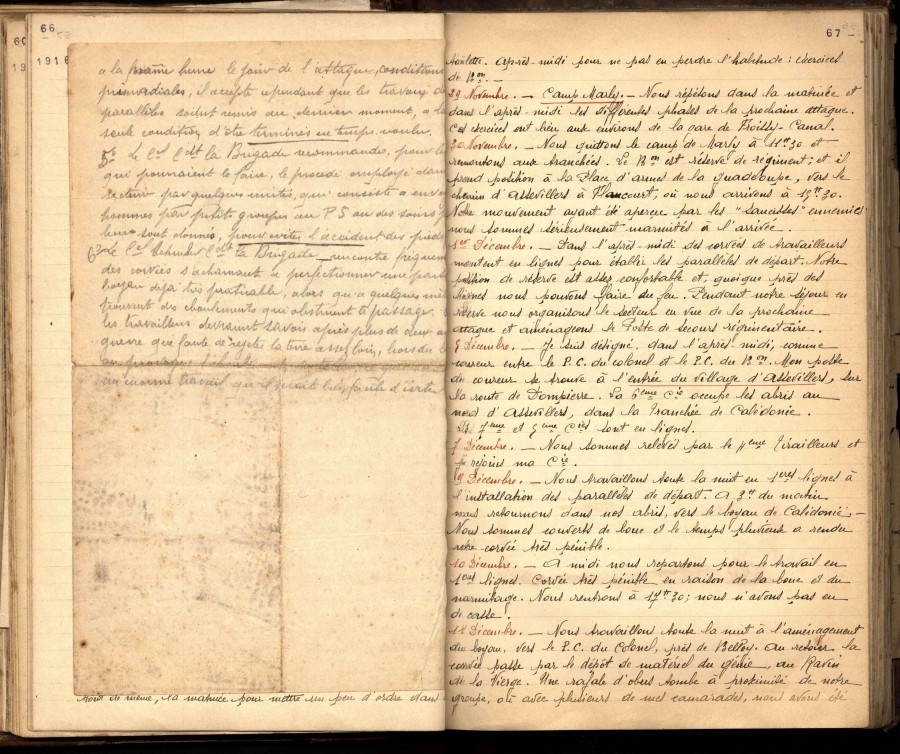 66
1916
a la même heure le jour de l'attaque, conditions
primordiales, il accepte cependant que les travaux de
parallèles soient remis au dernier moment, à la
seule condition d'être terminés en temps voulu.
5° Le Cel Cdt la Brigade recommande, pour le
qui pourraient le faire, le procédé employé dans
secteur par quelques unités, qui consiste à envoyer
hommes par petits groupes au P S où des soins
leur sont donnés, pour éviter l'accident des pieds
6° Le Cel Cdt la Brigade rencontre fréquem
des corvées s'acharnant à perfectionner une part
boyau déjà très praticable, alors qu'à quelques mèt
trouvent des éboulements qui obstruent le passage.
Les travailleurs devraient savoir après plus de deux a
guerre que faute de rejeter la terre assez loin, hors du
un énorme travail
tout de même, la matinée pour mettre un peu d'ordre dans
67
toilette. Après-midi pour ne pas en perdre l'habitude : exercices
de Bon. —
29 Novembre. — Camp Marly. — Nous répétons dans la matinée et
dans l'après-midi les différentes phases de la prochaine attaque.
Ces exercices ont lieu aux environs de la gare de Froissy-Canal.
30 Novembre. — Nous quittons le camp de Marly à 11H30 et
remontons aux tranchées. Le Bon est réserve de régiment; et il
prend position à la Place d'armes de la Guadeloupe, vers le
chemin d'Assevillers à Flaucourt, où nous arrivons à 15H30.
Notre mouvement ayant été aperçu par les "saucisses" ennemies
nous sommes sérieusement marmités à l'arrivée.
1er Décembre. — Dans l'après-midi des corvées de travailleurs
montent en lignes pour établir les parallèles de départ. Notre
position de réserve est assez confortable et, quoique près des
lignes nous pouvons faire du feu. Pendant notre séjour en
réserve nous organisons le secteur en vue de la prochaine
attaque et aménageons le Poste de secours régimentaire.
5 Décembre. — Je suis désigné, dans l'après-midi, comme
coureur entre le P.C. du colonel et le P.C. du Bon. Mon poste
de coureur se trouve à l'entrée du village d'Assevillers, sur
la route de Dompierre. La 6ème Cie occupe les abris au
nord d'Assevillers, dans la Tranchée de Calédonie.
Les 7ème et 5ème Cies sont en lignes.
7 Décembre. — Nous sommes relevés par le 4ème Tirailleurs et
je rejoins ma Cie.
9 Décembre. — Nous travaillons toute la nuit en 1ères lignes à
l'installation des parallèles de départ. A 3H du matin
nous retournons dans nos abris, vers le boyau de Calédonie. —
Nous sommes couverts de boue et le temps pluvieux a rendu
notre corvée très pénible.
10 Décembre. — A midi nous repartons pour le travail en
1ères lignes. Corvée très pénible en raison de la boue et du
marmitage. Nous rentrons à 17H30; nous n'avons pas eu
de casse.
12 Décembre. — Nous travaillons toute la nuit à l'aménagement
du boyau, vers le P.C. du Colonel, près de Belloy. Au retour la
corvée passe par le dépôt de matériel du génie, au Ravin
de la Vierge. Une rafale d'obus tombe à proximité de notre
groupe, où avec plusieurs de mes camarades, nous avons été